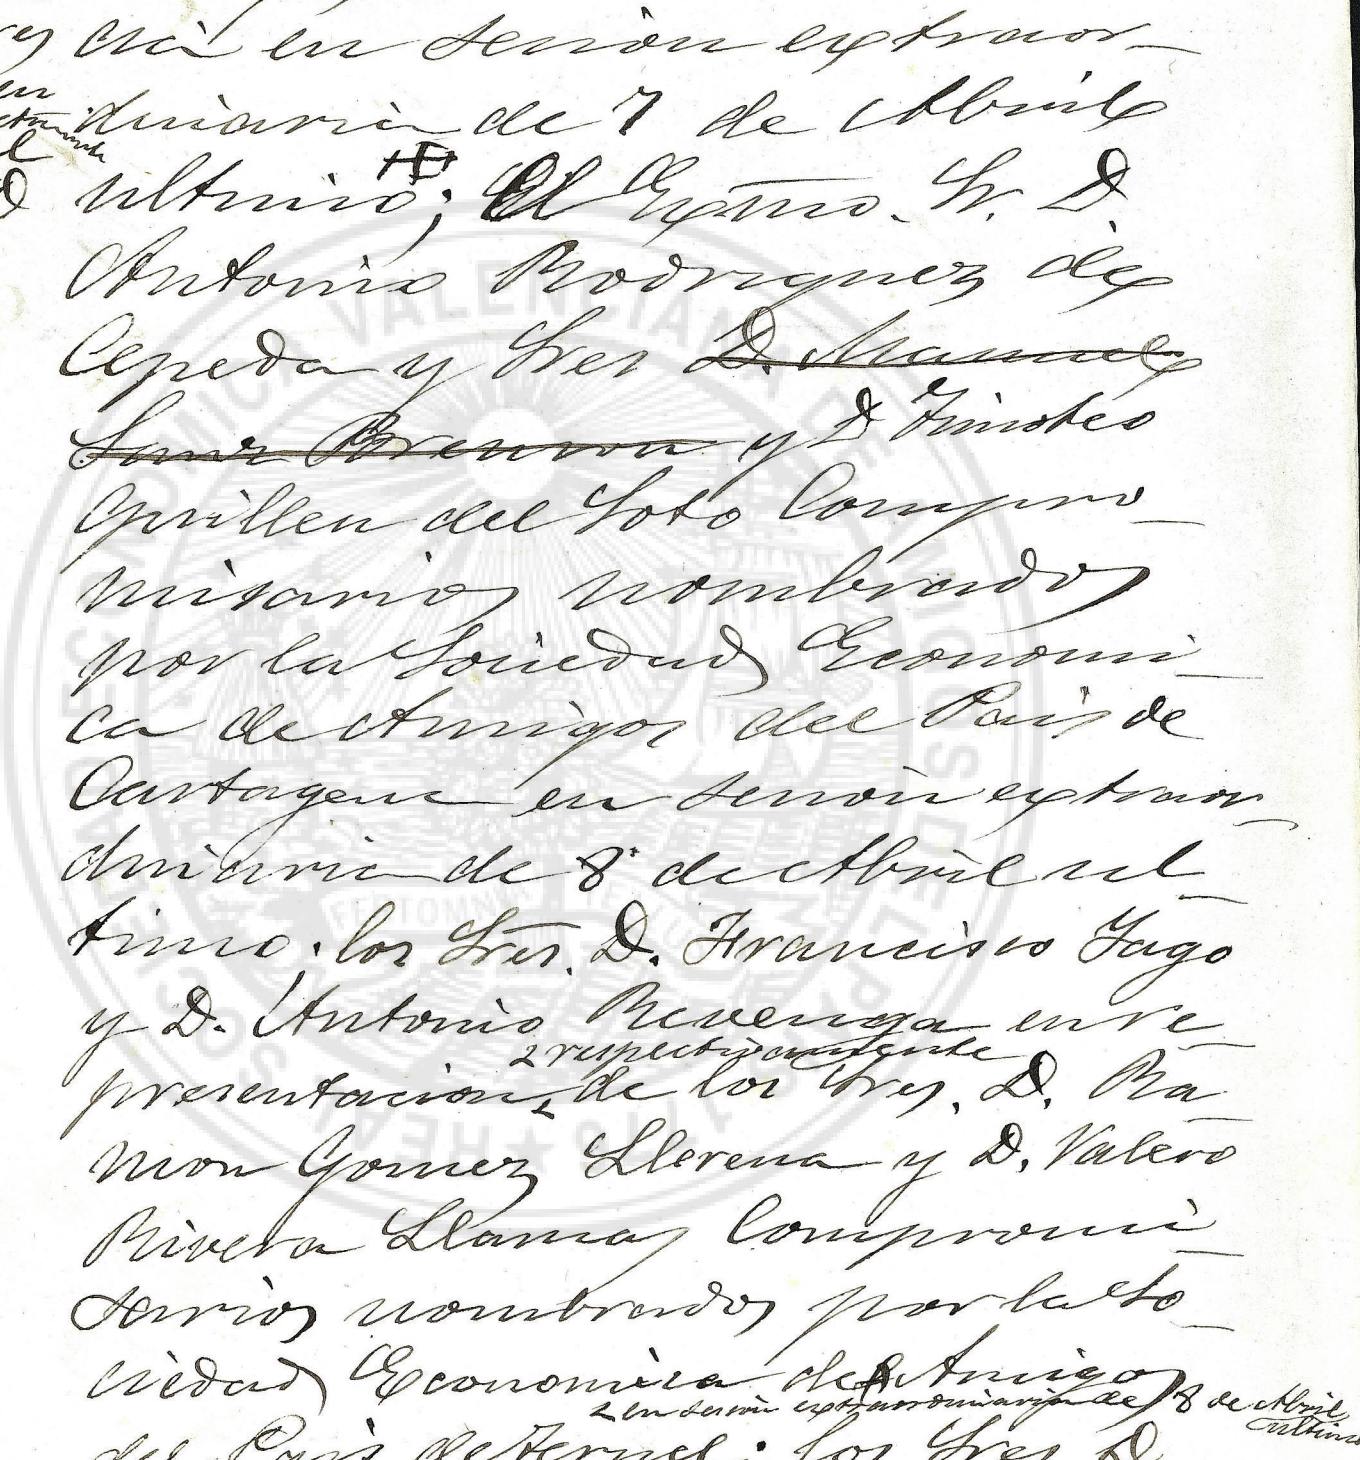 cia en sesion extraor-
dinaria de 7 de Abril
ultimo; El Exmo. Sr. D.
Antonio Rodriguez de
Cepeda y Sres D. Manuel
Sanz Bremon y D Timoteo
Guillen del Soto Compro-
misarios nombrados
por la Sociedad Economi-
ca de Amigos del Pais de
Cartagena en sesion extraor-
dinaria de 8 de Abril ul-
timo; los Sres. D. Francisco Yago
y D. Antonio Revenga en re-
respectivamente
presentacion de los Sres. D. Ra-
mon Gomez Llerena y D. Valero
Rivera Llamas Compromi-
sarios nombrados por la So-
ciedad Economica de Amigos
en sesion extraordinaria de 8 de Abril
ultimo
del Pais de Teruel; los Sres D.
REAL SOCIEDAD ECONOMICA VALENCIANA DE AMIGOS DEL PAIS
1776